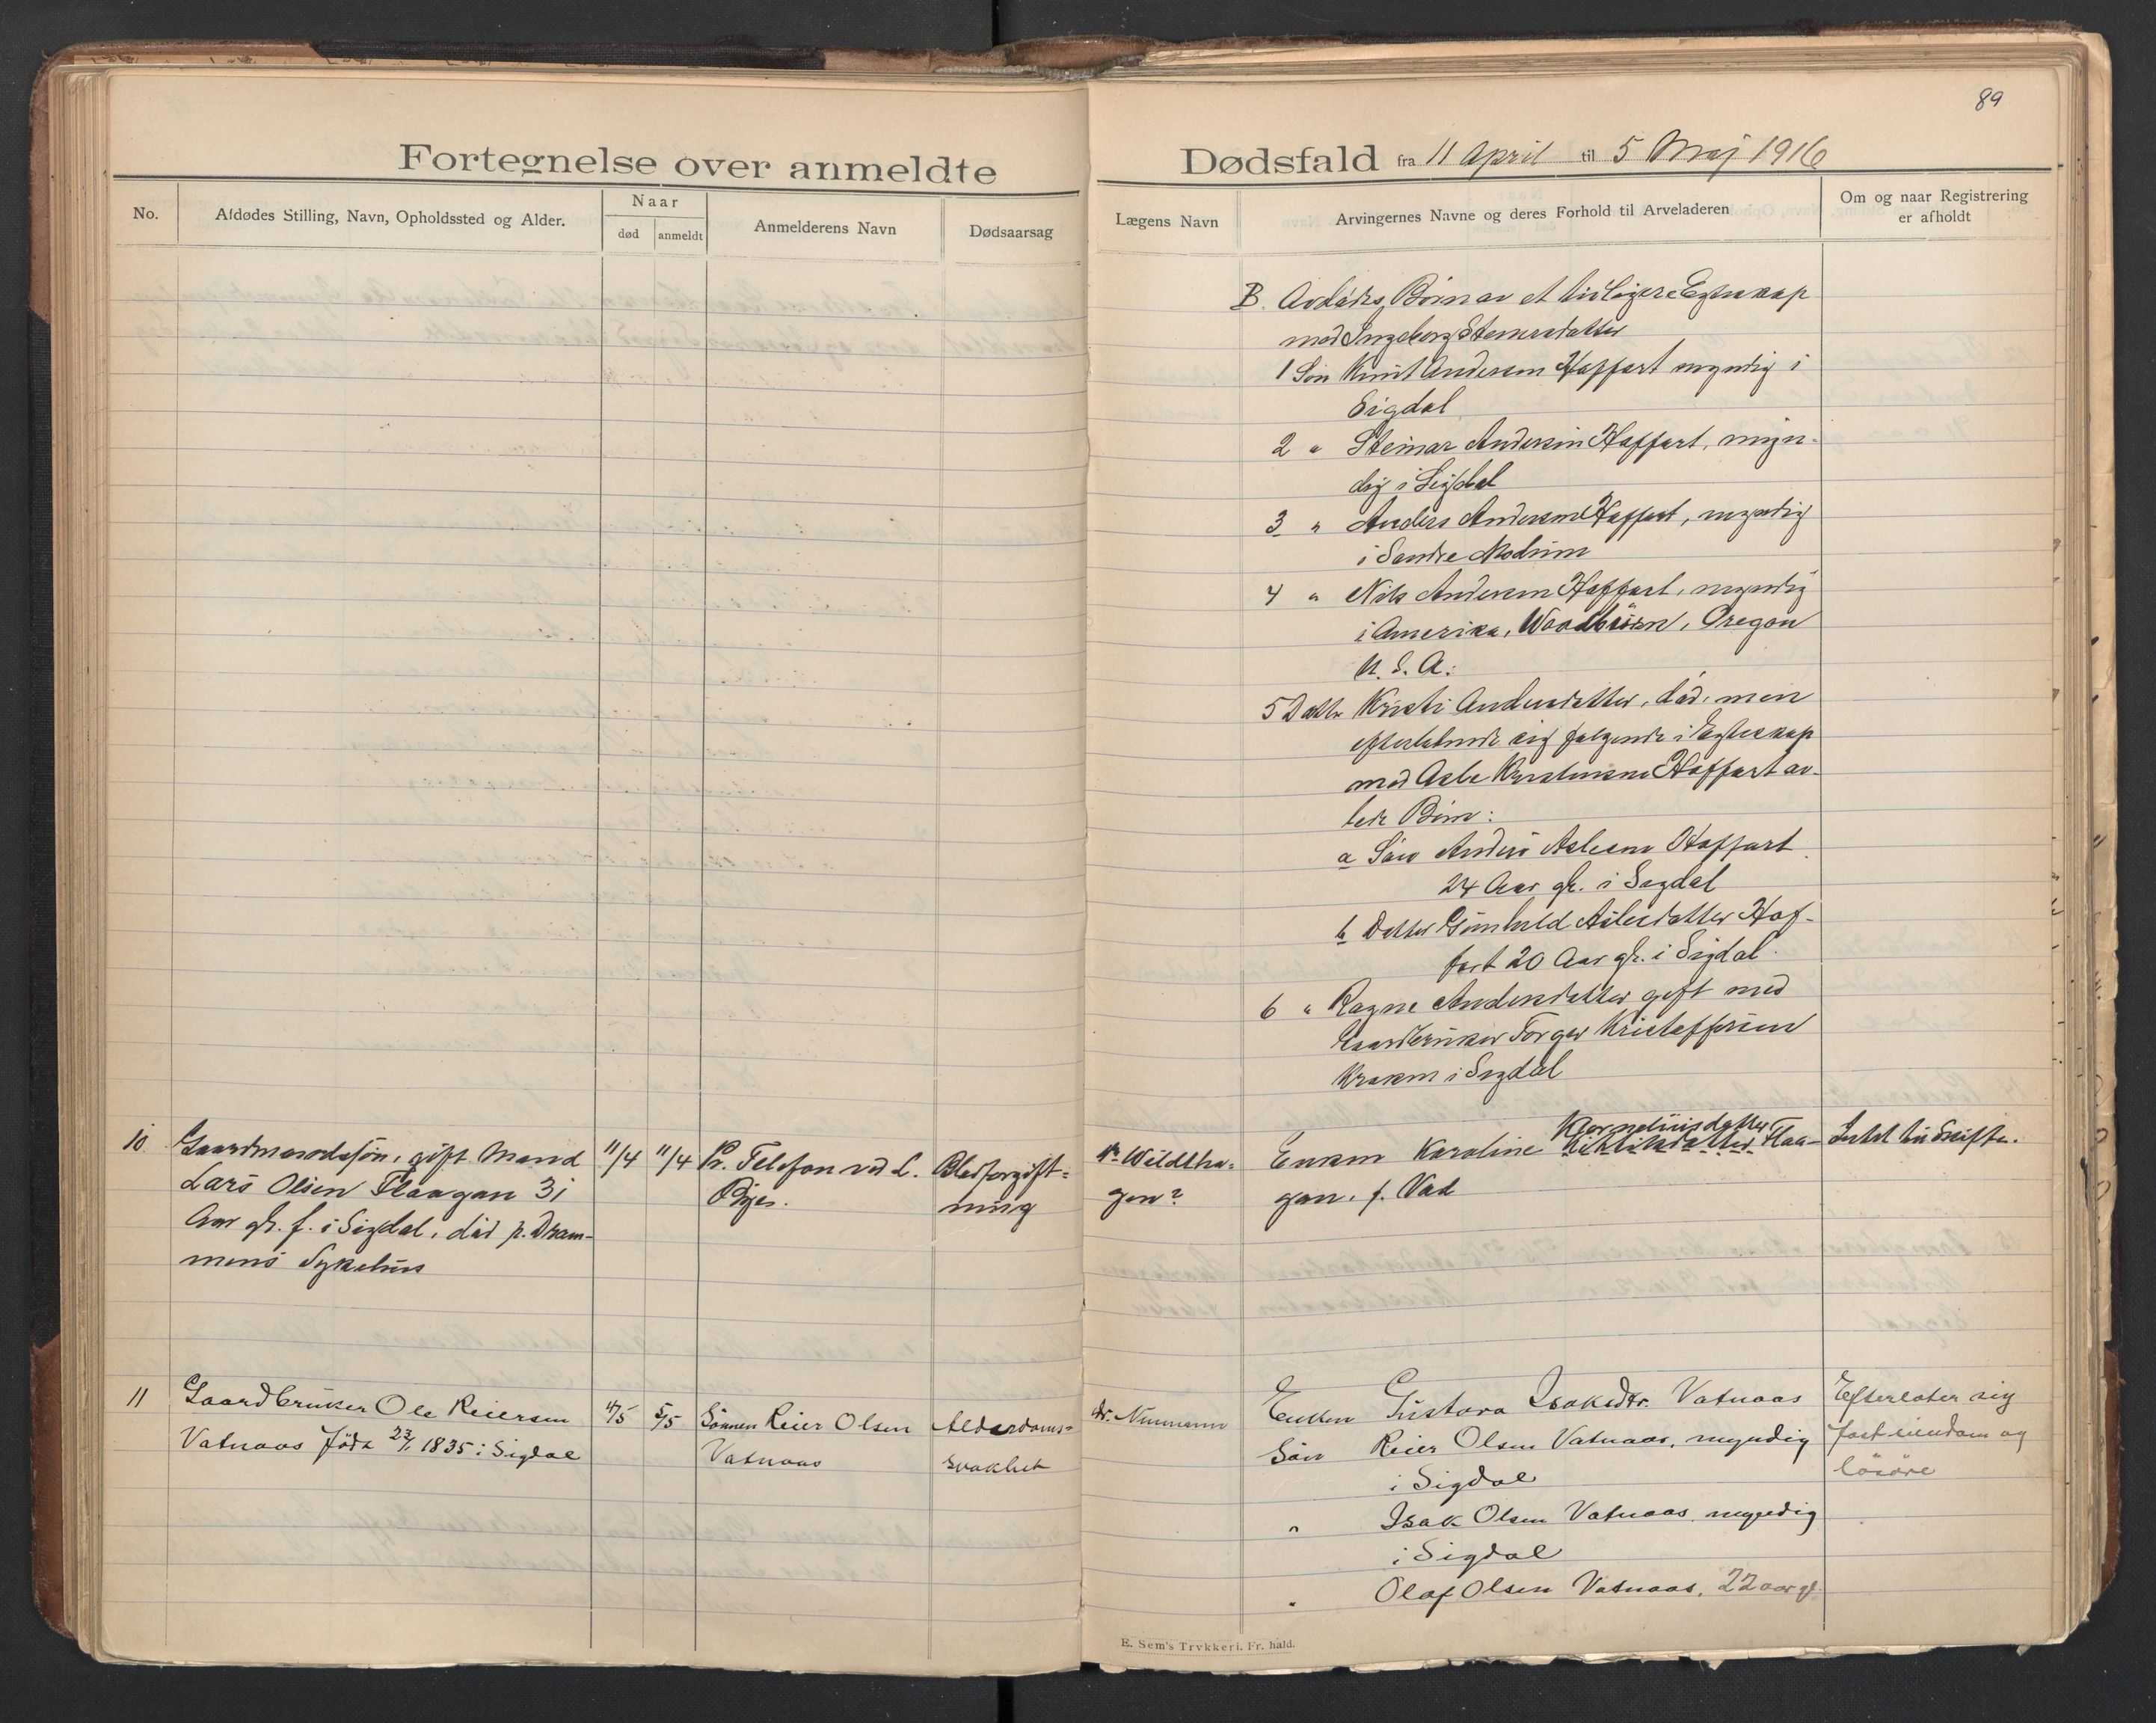 89
Fortegnelse over anmeldte Dødsfald fra 11 April til 5 Maj 1916
No.
Afdødes Stilling, Navn, Opholdssted og Alder.
Naar
død
anmeldt
Anmelderens Navn
Dødsaarsag
Lægens Navn
Arvingernes Navne og deres Forhold til Arveladeren
Om og naar Registrering
er afholdt
B. Avdødes Børn av et tidligere Egteskap
med Ingeborg Steinersdatter
1 Søn Knut Andersen Haffart myndig i
Sigdal
2 " Steinar Andersen Haffart, myn-
dig i Sigdal
3 " Anders Andersen Haffart, myndig
i Søndre Modum
4 " Nils Andersen Haffart, myndig
i Amerika, Woodbüörn, Oregon
U. S. A.
5 Datter Kristi Andersdatter, død, men
efterlatende sig følgende i Egteskap
med Asle Haffart av-
lede Børn:
a Søn Anders Aslesen Haffart
24 Aar gl. i Sigdal
b Datter Gunhild Aslesdatter Haf-
fart 20 Aar gl. i Sigdal.
6 " Ragne Andersdatter gift med
Gaardbruker Torger Kristoffersen
i Sigdal
10
Gaardmandssøn, gift Mand
Lars Olsen Flaagan 31
Aar gl. f. i Sigdal, død p. Dram-
mens Sykehus
11/4
11/4
Pr. Telefon ved L.
Blodforgift-
ning
Dr. Wildtha-
gen?
Kornelüisdatter
Enken Karoline Flaa-
gan, f. Vad
Intet til Skifte.
11
Gaardbruker Ole Reiersen
Vatnaas født 23/1 1835 i Sigdal
4/5
5/5
Sønnen Reier Olsen
Vatnaas
Alderdoms-
svakhet
dr. Neumann
Enken Gustava Isaksdtr. Vatnaas
Søn Reier Olsen Vatnaas, myndig
i Sigdal
" Isak Olsen Vatnaas, myndig
i Sigdal
" Olaf Olsen Vatnaas, 22 aar gl.
Efterlater sig
fast eiendom og
løsøre
E. Sem's Trykkeri. Fr. hald.